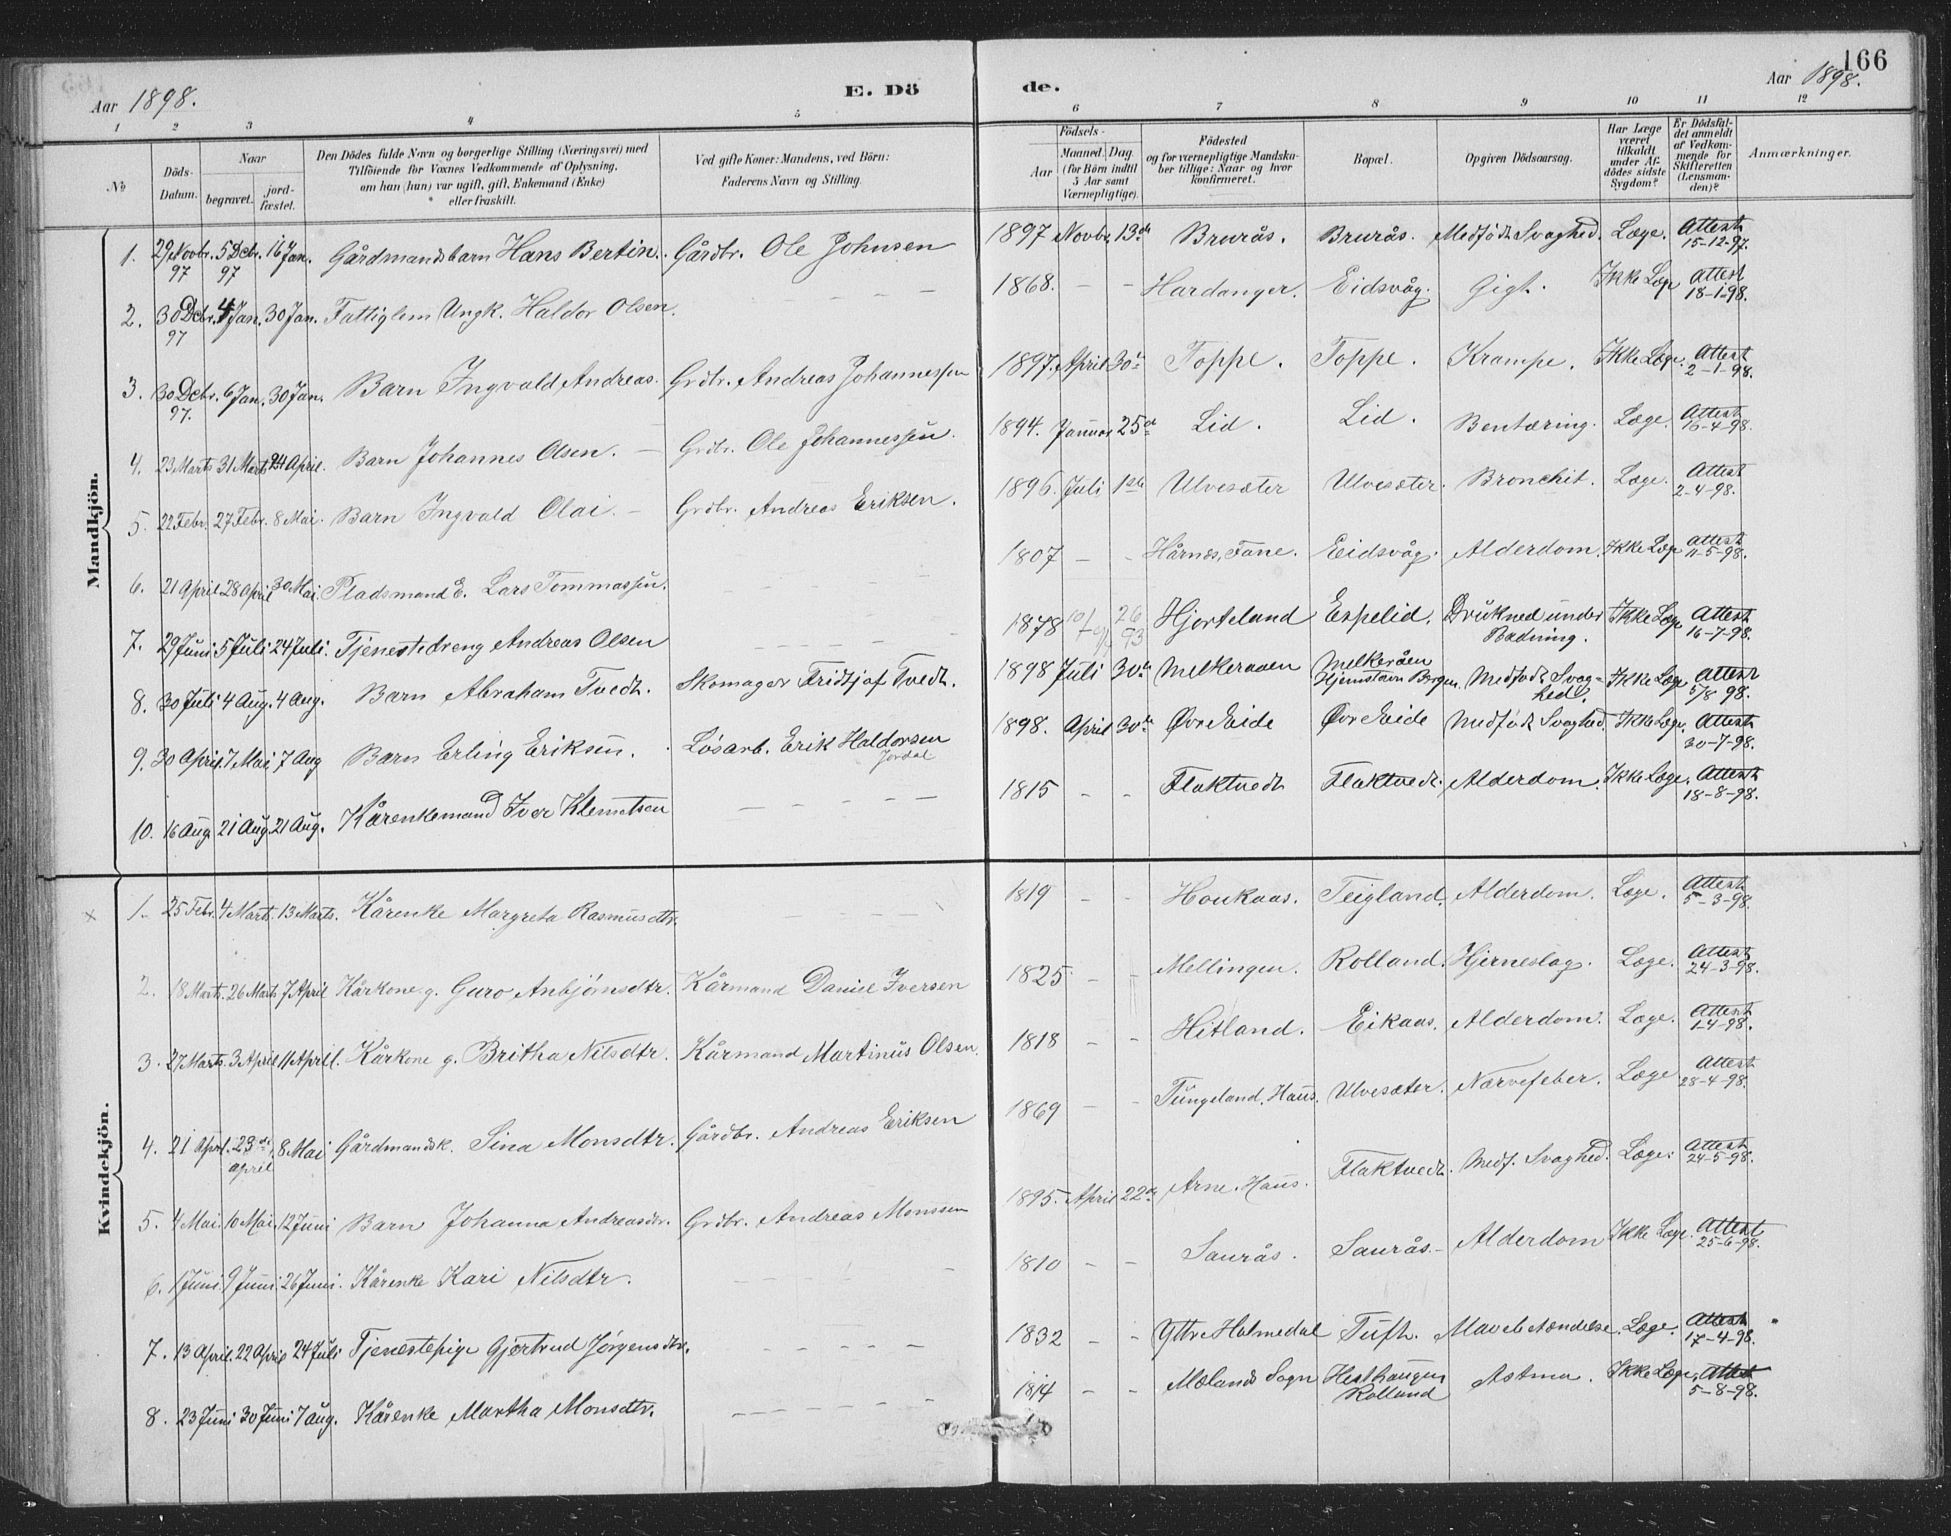 166
Aar 1898. E. Dö de. Aar 1898.
1 2 3 4 5 6 7 8 9 10 11 12
No
Döds-Datum.
Naar
begravet. jord-fæstet.
Den Dödes fulde Navn og borgerlige Stilling (Næringsvei) med
Tilföiende for Voxnes Vedkommende af Oplysning,
om han (hun) var ugift, gift, Enkemand (Enke)
eller fraskilt.
Ved gifte Koner: Mandens, ved Börn:
Faderens Navn og Stilling.
Födsels-
Aar Maaned. Dag
(for Børn indtil
5 Aar samt
Værnepligtige).
Födested
og for værnepligtige Mandska-
ber tillige: Naar og hvor
konfirmeret.
Bopæl.
Opgiven Dödsaarsag.
Har Læge
været
tilkaldt
under Af-
dödes sidste
Sygdom?
Er Dödsfal-
det anmeldt
af Vedkom-
mende for
Skifteretten
(Lensman-
den)?
Anmærkninger.
Mandkjön.
1. 29 Novbr. 97 5 Dcbr. 97 16 Jan. Gårdmandsbarn Hans Bertin. Gårdbr. Ole Johnsen 1897 Novbr 13de Brurås. Brurås. Medfødt Svaghed. Læge. Attest 15-12-97.
2. 30 Dcbr. 97 4 Jan. 30 Jan. Fattiglem Ungk. Haldor Olsen. 1868. Hardanger. Eidsvåg. Gigt. Ikke Læge Attest 18-1-98.
3. 30 Dcbr. 97. 6 Jan. 30 Jan. Barn Ingvald Andreas. Grdbr. Andreas Johannessen 1897. April 30te Toppe. Toppe. Krampe. Ikke Læge. Attest 2-1-98.
4. 23 Marts 31 Marts 24 April. Barn Johannes Olsen. Grdbr. Ole Johannessen. 1894. Januar 25de Lid. Lid. Bentæring. Læge. Attest 16-4-98.
5. 22 Febr. 27 Febr. 8 Mai. Barn Ingvald Olai. Grdbr. Andreas Eriksen. 1896. Juli 1ste Ulvesæter Ulvesæter. Bronchit. Læge. Attest 2-4-98.
6. 21 April 28 April 30 Mai. Pladsmand E. Lars Tommassen. 1807 Hårnes, Fane. Eidsvåg. Alderdom. Ikke Læge Attest 11-5-98.
7. 29 Juni 5 Juli 24 Juli. Tjenestedreng Andreas Olsen 1878 26 93 Hjorteland Espelid. Drukned under Badning. Ikke Læge Attest 16-7-98.
8. 30 Juli 4 Aug. 4 Aug. Barn Abraham Tvedt. Skomager Fridtjof Tvedt. 1898 Juli 30te Melkeraaen Melkeråen Hjemstavn Bergen. Medfødt Svag-hed. Ikke Læge Attest 5/8 98.
9. 30 April. 7 Mai 7 Aug Barn Erling Eriksen. Løsarb. Erik Haldorsen Jordal 1898. April 30te Øvre Eide Øvre Eide Medfødt Svaghed. Ikke Læge. Attest 30-7-98.
10. 16 Aug. 21 Aug. 21 Aug. Kårenkemand Iver Klemetsen 1815 Flaktvedt Flaktvedt. Alderdom. Ikke Læge. Attest 18-8-98.
Kvindekjön.
x 1. 25 Febr. 4 Marts. 13 Marts. Kårenke Margreta Rasmusdtr. 1819 Houkaas. Teigland. Alderdom. Læge. Attest 5-3-98.
2. 18 Marts. 26 Marts 7 April Kårkone g. Guro Anbjörnsdtr. Kårmand Daniel Iversen 1825 Mellingen. Rolland. Hjerneslag. Læge. Attest 24-3-98.
3. 27 Marts. 3 April 11 April. Kårkone g. Britha Nilsdtr. Kårmand Martinus Olsen. 1818 Hitland. Eikaas. Alderdom. Læge. Attest 1-4-98.
4. 21 April. 23de april 8 Mai Gårdmandsk. Sina Monsdtr. Gårdbr. Andreas Eriksen 1869 Tungeland, Haus. Ulvesæter. Nærvefeber. Læge Attest 28-4-98.
5. 4 Mai. 10 Mai. 12 Juni Barn Johanna Andreasdr. Grdbr. Andreas Monssen 1895. April 22de Arne, Haus. Flaktvedt. Medf. Svaghed. Læge. Attest 24-5-98.
6. 1 Juni. 9 Juni. 26 Juni. Kårenke Kari Nilsdtr. 1810 Saurås. Saurås. Alderdom Ikke Læge. Attest 25-6-98.
7. 13 April. 22 April 24 Juli Tjenestepige Gjertrud Jørgensdtr. 1832 Yttre Holmedal Tuft. Mavebetændelse. Læge. Attest 17-4-98.
8. 23 Juni 30 Juni 7 aug. Kårenke Martha Monsdtr. 1814 Mælands Sogn Hesthaugen Rolland Astma. Ikke Læge. Attest 5-8-98.